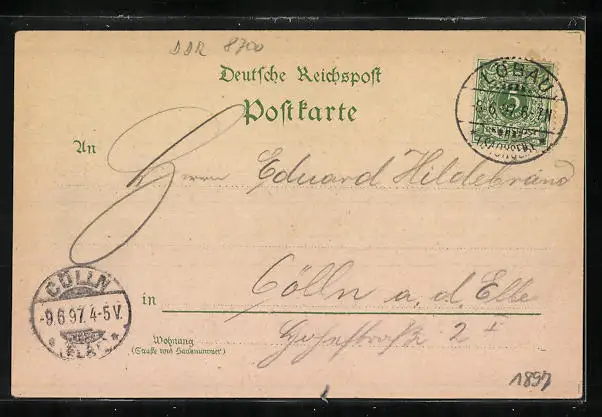 DDR 8700
Deutsche Reichspost
Postkarte
LÖBAU
8.6.97. 6-7N
An Herrn Eduard Hildebrand
CÖLLN
-9.6.97. 4-5V.
(ELBE)
in Cölln a. d. Elbe
Wohnung
(Straße und Hausnummer)
2 I
1897